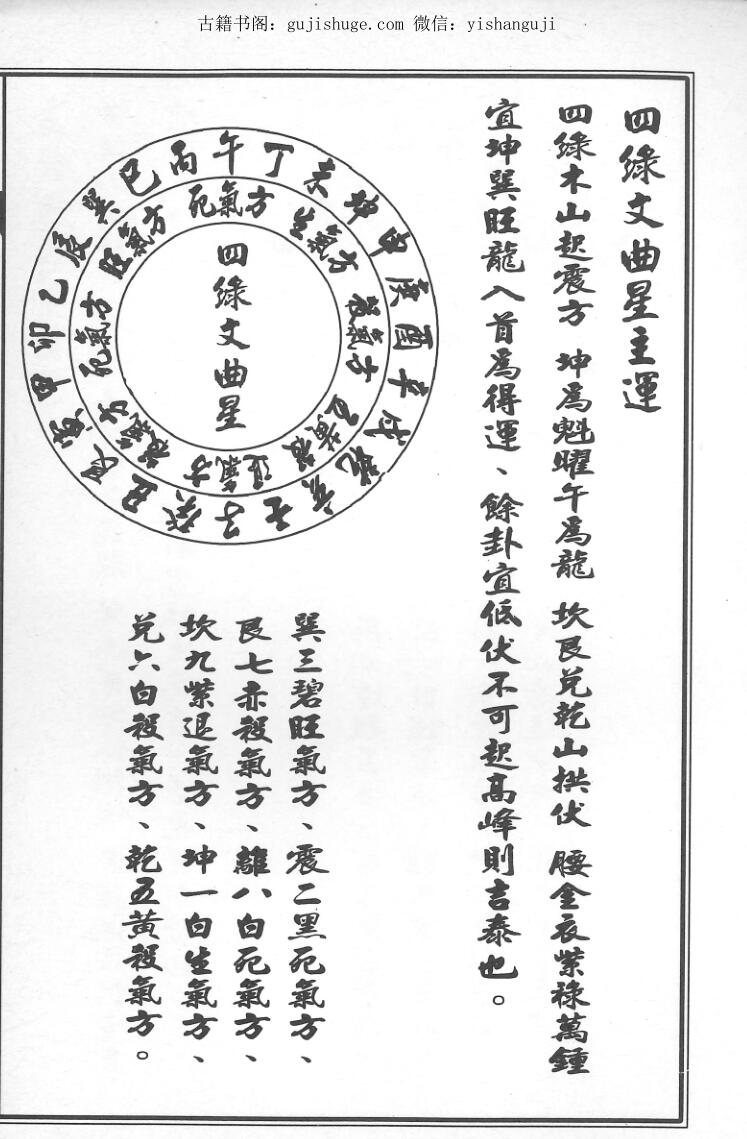 古籍书阁：gujishuge.com 微信：yishanguji
四綠文曲星主運
四綠木山起震方 坤為魁曜午為龍 坎艮兌乾山拱伏 腰金衣紫祿萬鍾
宜坤巽旺龍入首為得運、餘卦宜低伏不可起高峰則吉泰也。
午丁未坤申庚酉辛戌乾亥壬子癸丑艮寅甲卯乙辰巽巳丙
死氣方
生氣方
殺氣方
五黃殺
退氣方
殺氣方
死氣方
旺氣方
四綠文曲星
巽三碧旺氣方、震二黑死氣方、
艮七赤殺氣方、離八白死氣方、
坎九紫退氣方、坤一白生氣方、
兌六白殺氣方、乾五黃殺氣方。